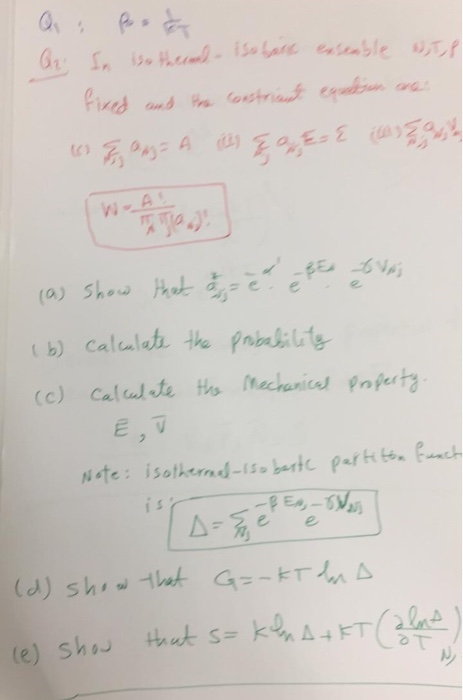 Q1: β = 1/KT
Q2: In isothermal-isobaric ensemble N,T,P
fixed and the constriant equation are:
(i) Σ aNj = A (ii) Σ aNj E = Ɛ (iii) Σ aNj V
W = A! / π π (aNj)!
(a) Show that a*Nj = e^-α' . e^-βENj . e^-γVNj
(b) Calculate the probability
(c) Calculate the Mechanical property.
Ē, V̄
Note: isothermal-isobaric partition funct
is:
Δ = Σ e^-βENj e^-γVNj
(d) show that G = -KT ln Δ
(e) Show that S = k ln Δ + KT (∂lnΔ/∂T)N,